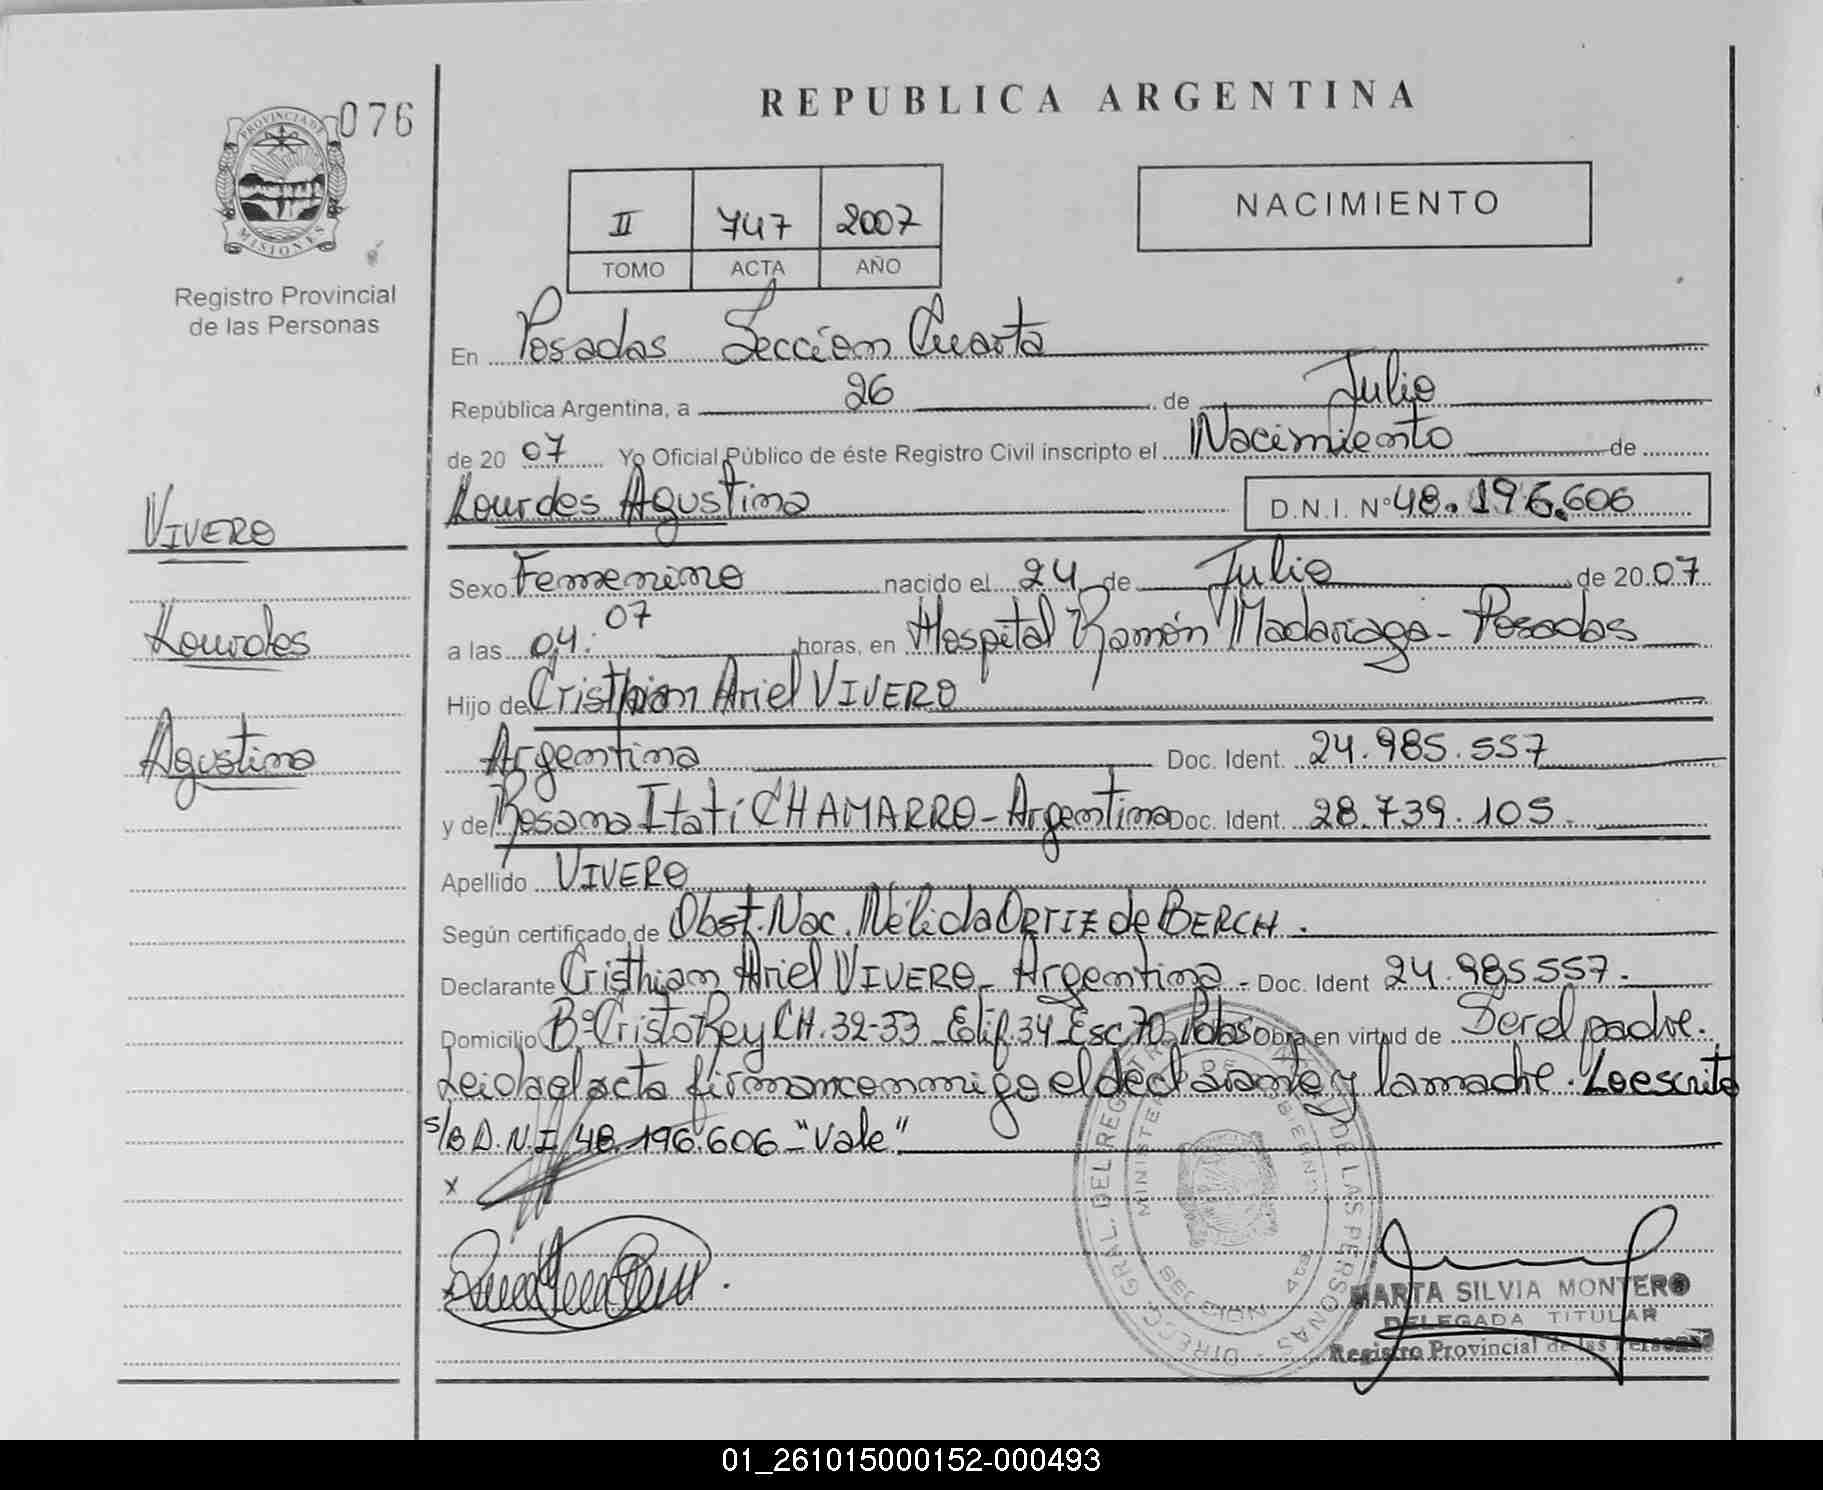 REPUBLICA ARGENTINA
076
PROVINCIA DE
MISIONES
Registro Provincial
de las Personas
II 747 2007
TOMO ACTA AÑO
NACIMIENTO
En Posadas Sección Cuarta
República Argentina, a 26 de Julio
de 20 07 Yo Oficial Público de éste Registro Civil inscripto el Nacimiento de
Lourdes Agustina D.N.I. Nº 48.196.606
VIVERO
Lourdes
Agustina
Sexo Femenino nacido el 24 de Julio de 20 07
a las 04:07 horas, en Hospital Ramón Madariaga - Posadas
Hijo de Cristhian Ariel VIVERO
Argentina Doc. Ident. 24.985.557
y de Rosana Itatí CHAMARRO - Argentina Doc. Ident. 28.739.105.
Apellido VIVERO
Según certificado de Obst. Nac. Nélida ORTIZ de BERCH.
Declarante Cristhian Ariel VIVERO - Argentina - Doc. Ident 24.985557.
Domicilio Bº Cristo Rey CH. 32-33 Edif. 34 Esc 70 Pdas Obra en virtud de Ser el padre.
Leida el acta firman conmigo el declarante y la madre. Lo escrito
s/B D.N.I. 48.196.606 "Vale"
x
DIRECC. GRAL. DEL REGISTRO PROVINCIAL DE LAS PERSONAS
MINISTERIO DE GOBIERNO
SECCION 4ta
MARTA SILVIA MONTERO
DELEGADA TITULAR
Registro Provincial de las Personas
01_261015000152-000493